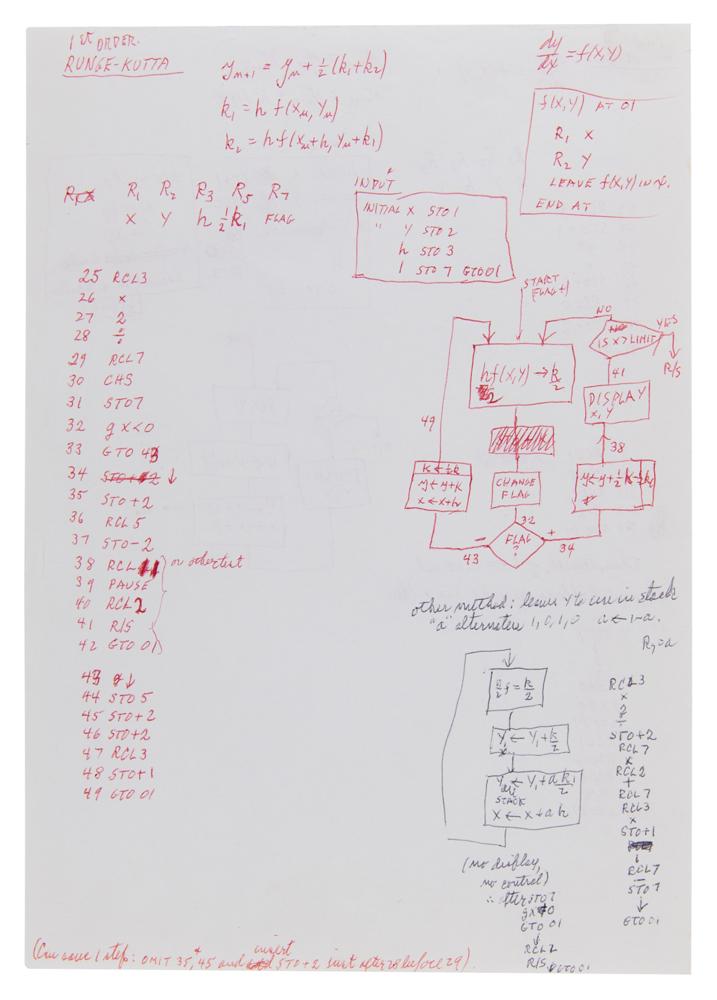 1ST ORDER.
RUNGE-KUTTA
y_{n+1} = y_n + ½(k₁+k₂)
k₁ = h f(x_n, y_n)
k₂ = h f(x_n+h, y_n+k₁)
dy/dx = f(x,y)
f(x,y) AT 01
R₁ X
R₂ Y
LEAVE f(x,y) IN X.
END AT
R₁ R₂ R₃ R₅ R₇
X Y h ½k₁ FLAG
INPUT
INITIAL X STO 1
" Y STO 2
h STO 3
1 STO 7 GTO 01
25 RCL3
26 x
27 2
28 ÷
29 RCL 7
30 CHS
31 STO7
32 g x<0
33 GTO 43
34 ↓
35 STO+2
36 RCL 5
37 STO-2
38 RCL 1
39 PAUSE
40 RCL 2
41 R/S
42 GTO 01
or other test
43 ↓
44 STO 5
45 STO+2
46 STO+2
47 RCL3
48 STO+1
49 GTO 01
START
FLAG+1
NO
IS X>LIMIT
YES
R/S
41
hf(x,y)/2 → k/2
DISPLAY
X, Y
49
38
K←½k
y←y+k
x←x+h
CHANGE
FLAG
y←y+½k-½k₁
32
FLAG
?
-
+
43
34
other method: leaves Y to use in stack
"a" alternates 1,0,1,0 a←1-a.
R₇=a
h/2 f = k/2
Y₁ ← Y₁+k/2
Y ← Y₁+a k₁/2
STACK
X ← X+ah
RCL3
x
2
÷
STO+2
RCL7
x
RCL2
+
RCL7
RCL3
x
STO+1
1
RCL7
-
STO7
↓
GTO 01
(no display,
no control)
∴ after STO7
GTO 01
↓
RCL2
R/S GTO 01
(Can save 1 step: OMIT 35, + 45 and insert STO+2 just after 28 before 29).